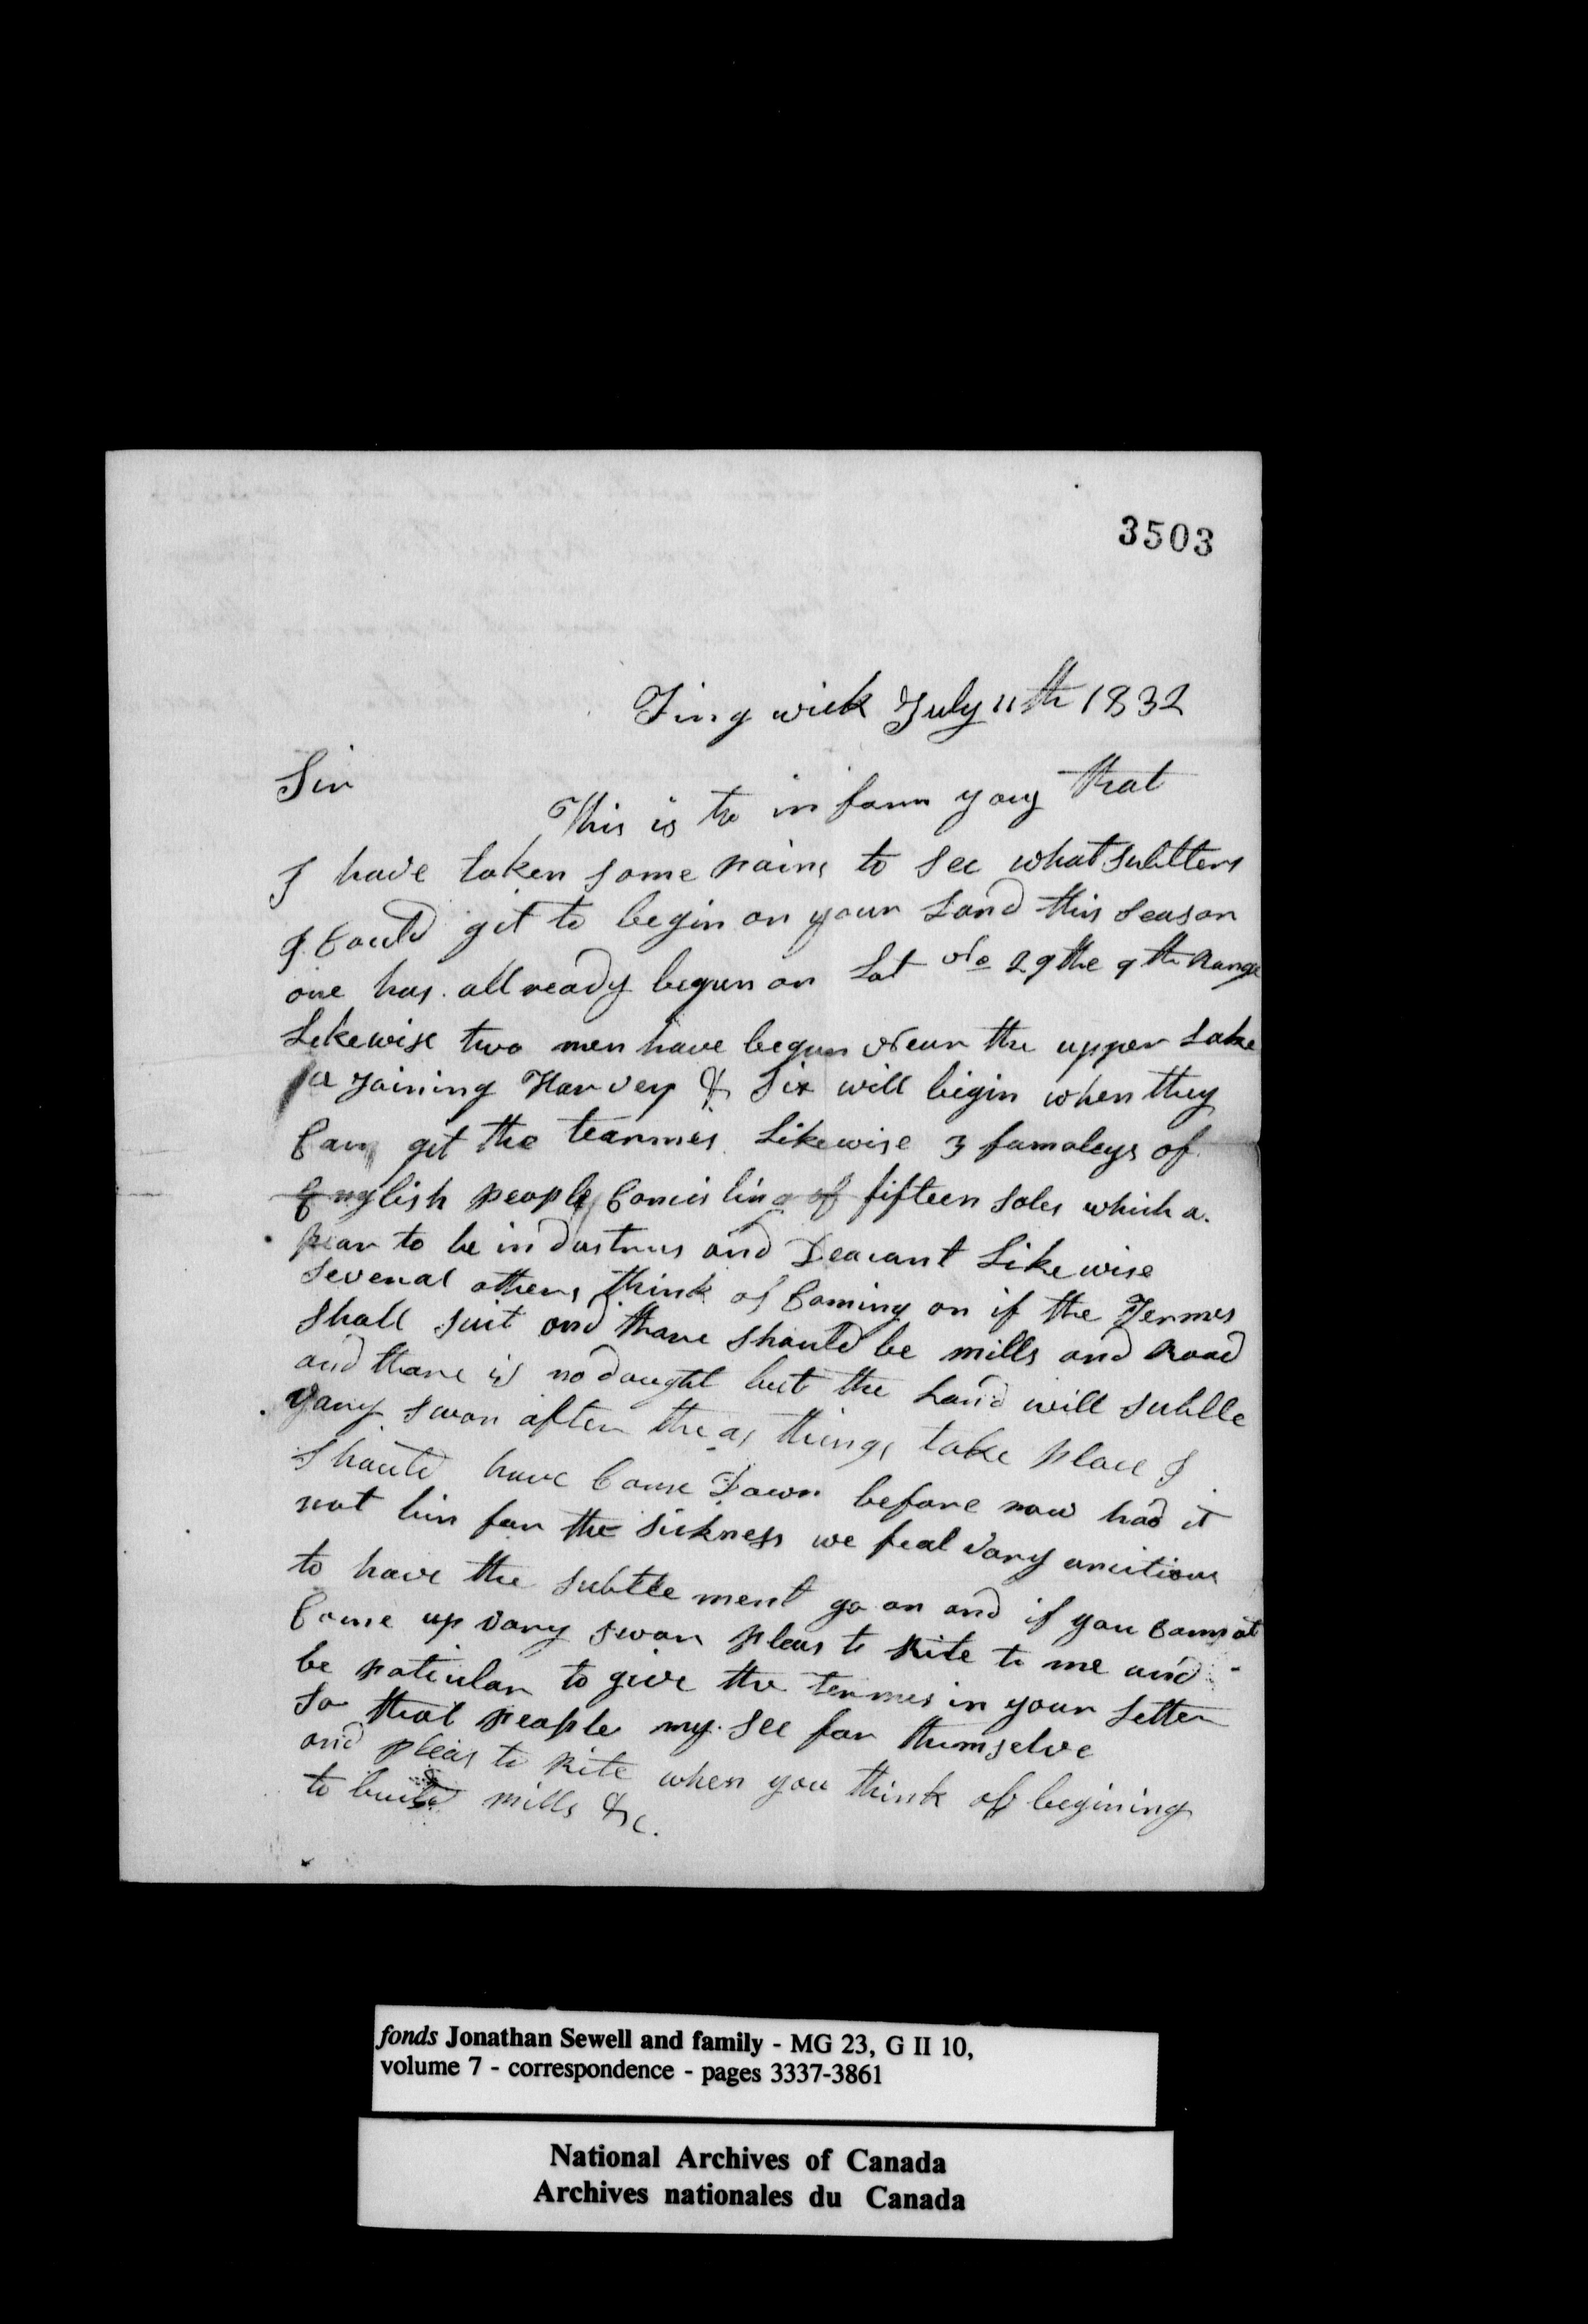 3503
Ting wick July 11th 1832
Sir
This is to in form you that
I have taken some pains to see what subtlers
I Could git to begin on your Land this season
one has allready begun on Lot No 29 the 9th Range
Likewise two men have begun Near the upper Lake
a joining Harvey & Six will begin when they
Can git the tearmes Likewise 3 famaleys of
English people Concisting of fifteen soles which a
pear to be industrus and Deacant Likewise
several others think of Coming on if the Termes
shall suit and thare should be mills and Road
and thare is no dought but the Land will subtle
vary swon after theas things take place I
should have Come Down before now had it
not bin for the sickness we feal vary
to have the subtle ment go on and if you Cannot
Come up vary swon pleas to Rite to me and
be paticular to give the termes in your Letter
so that people my see for themselve
and pleas to Rite when you think of begining
to build mills &c.
fonds Jonathan Sewell and family - MG 23, G II 10,
volume 7 - correspondence - pages 3337-3861
National Archives of Canada
Archives nationales du Canada